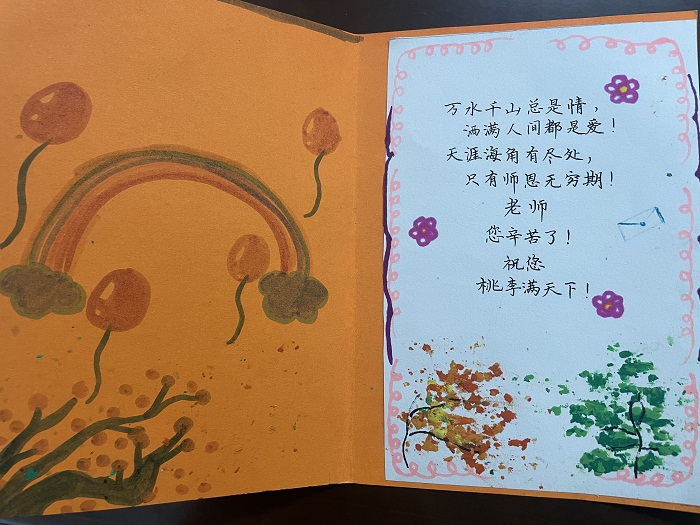 万水千山总是情，
洒满人间都是爱！
天涯海角有尽处，
只有师恩无穷期！
老师
您辛苦了！
祝您
桃李满天下！